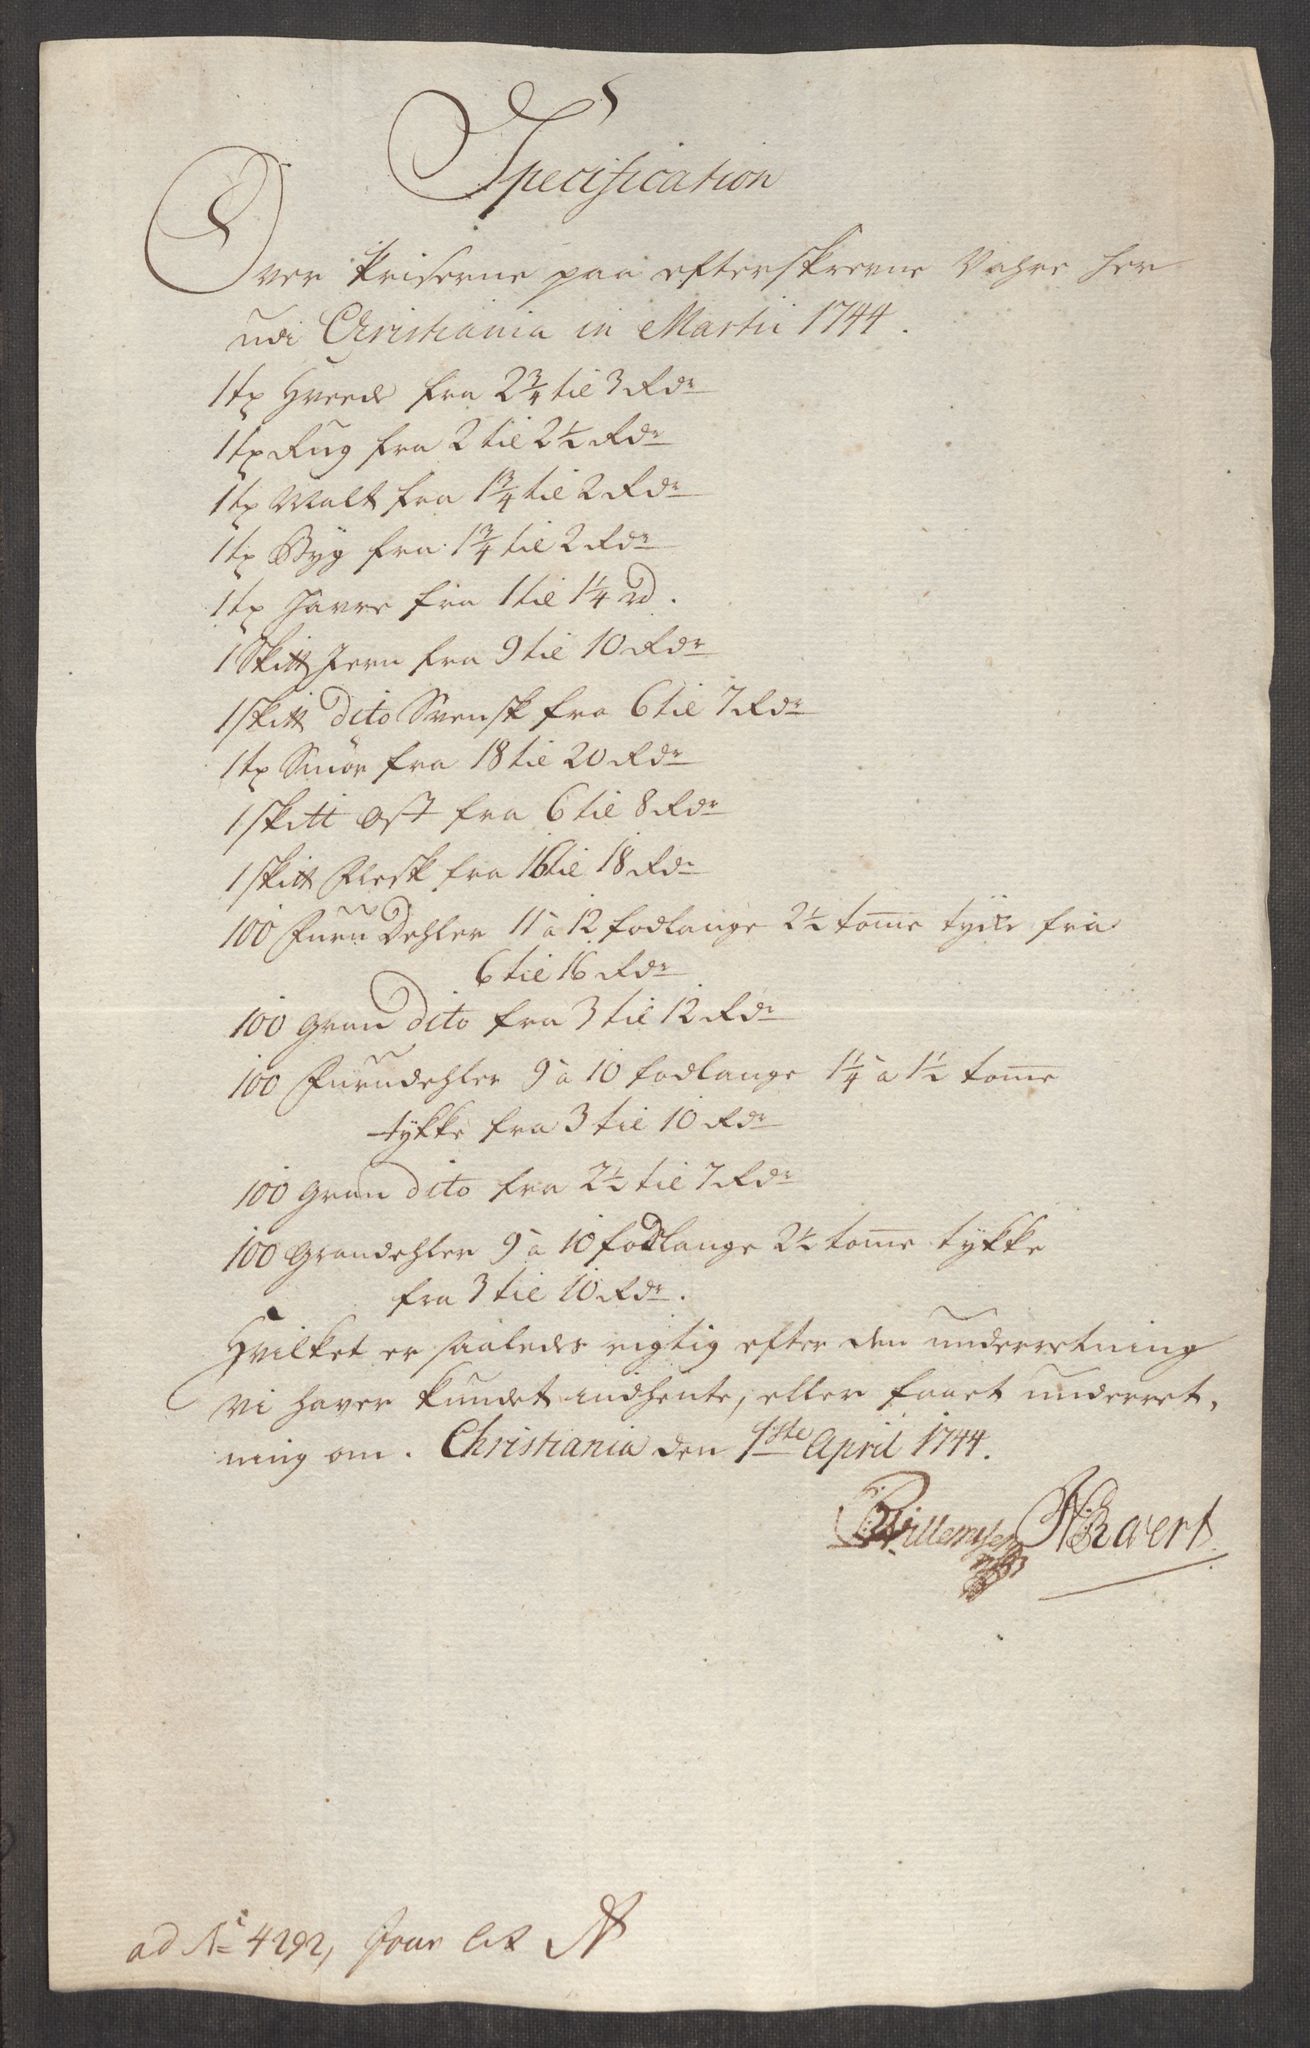 Specification
Over Priserne paa efterskrevne Vahre her
udi Christiania in Martii 1744.
1 tx Hvede fra 2 3/4 til 3 Rdr
1 tx Rug fra 2 til 2 1/2 Rdr
1 tx Malt fra 1 3/4 til 2 Rdr
1 tx Byg fra 1 3/4 til 2 Rdr
1 tx Havre fra 1 til 1 1/4 rd.
1 Skitt Jern fra 9 til 10 Rdr
1 skitt dito Svensk fra 6 til 7 Rdr
1 tx Smør fra 18 til 20 Rdr
1 skitt Ost fra 6 til 8 Rdr
1 skitt Flesk fra 16 til 18 Rdr
100 Furu Dehler 11 a 12 fodlange 2 1/2 tome tycke fra
6 til 16 Rdr
100 Gran dito fra 3 til 12 Rdr
100 Furudehler 9 a 10 fodlange 1 1/4 a 1 1/2 tome
tykke fra 3 til 10 Rdr
100 Gran dito fra 2 1/2 til 7 Rdr
100 Grandehler 9 a 10 fodlange 2 1/2 tome tykke
fra 3 til 10 Rdr.
Hvilket er saaledes rigtig efter den underretning
vi haver kundet indhente, eller faaet underret,
ning om. Christiania den 1ste April 1744.
Willemsen Evert
ad No 4292, Jour Lit N